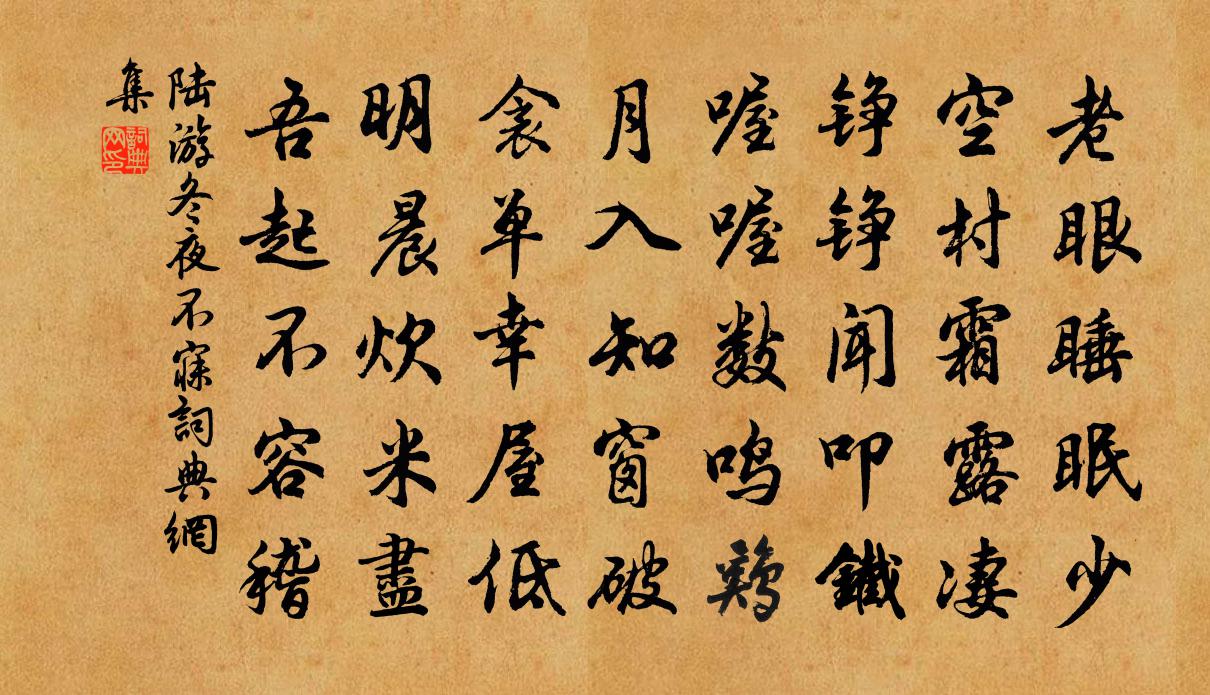 老眼睡眠少
空村霜露凄
铮铮闻叩鐵
喔喔数鸣鷄
月入知窗破
衾单幸屋低
明晨炊米盡
吾起不容稽
陆游冬夜不寐詞典網
集
詞典
网印